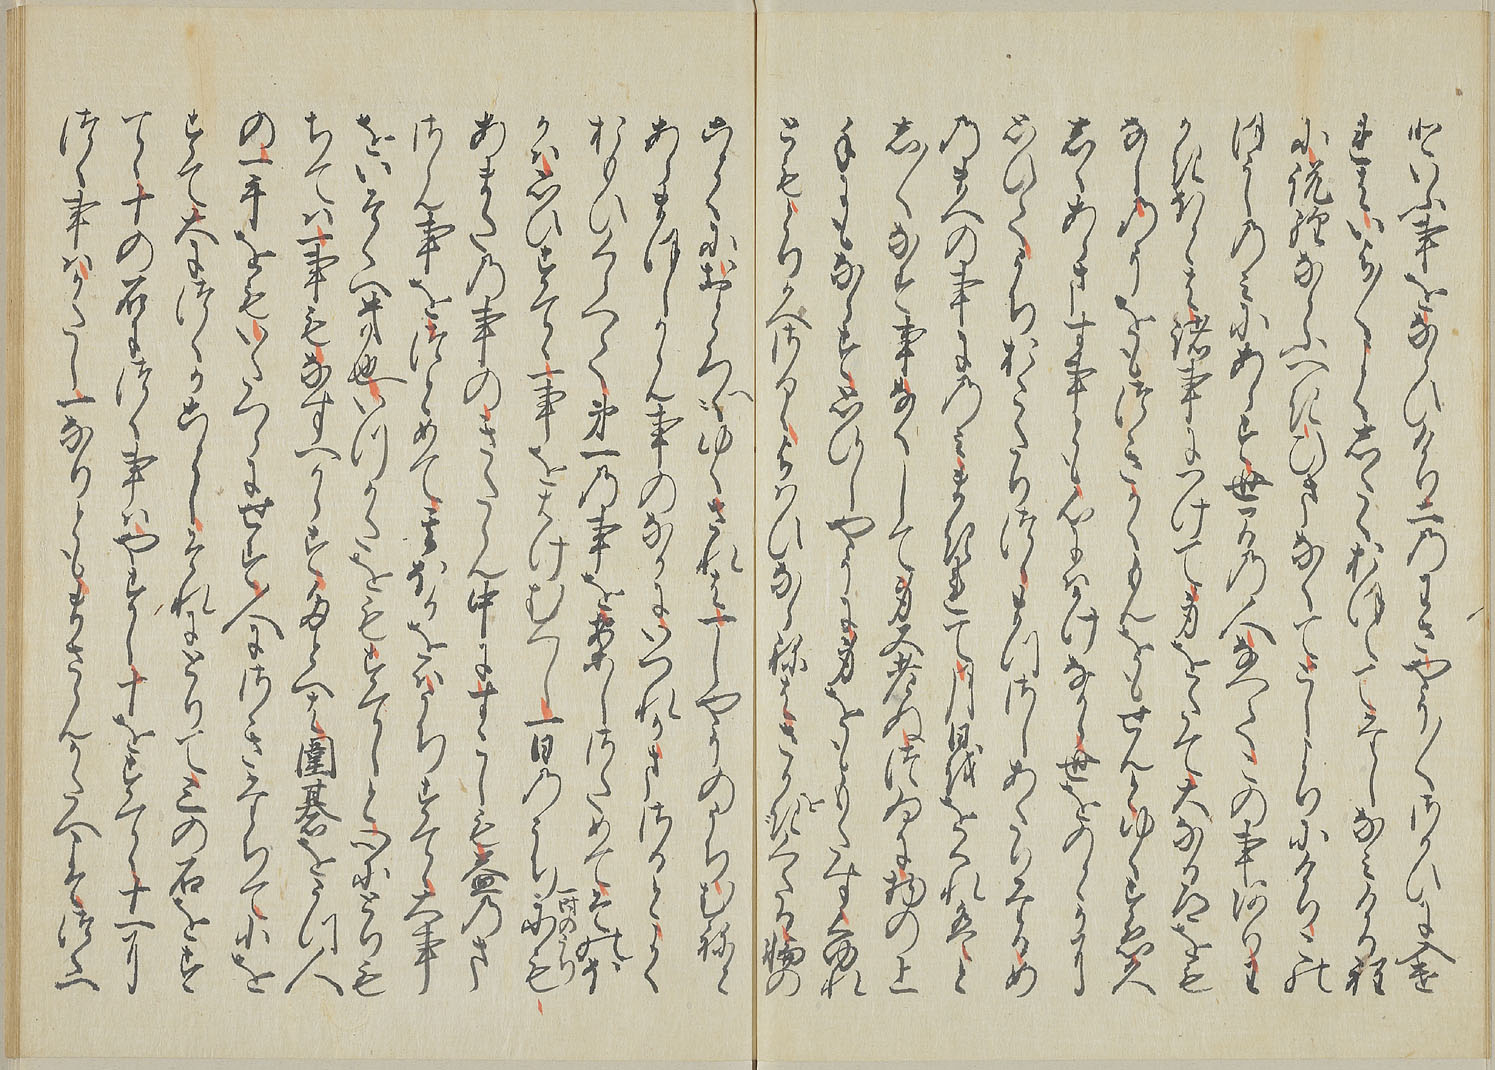 といふ事をならひけり二のわさやう/\さかひに入け
れはいよ/\よくしたくおほえてたしなみける程
に説経ならふへきひまなくてとしよりにけりこの
ほうしのみにあらす世間の人なへてこの事ありわ
かきほとは諸事につけて身をたて大なる道をも
なしのうをもつきかくもんをもせんとゆくすゑ久
しくあらます事とも心にはかけなから世をのとかに
思ひてうちおこたりつゝまつさしあたりたるめ
のまへの事にのみまきれて月日をゝくれはこと
しくなす事なくして身は老ぬつゐに物の上
手にもならす思ひしやうに身をもゝたすくゆれ
ともとりかへさるゝよはひならねはさかをくたる輪の
ことくにおとろへゆくされは一しやうのうちむねと
あらまほしからん事のなかにいつれかまさるとよく
おもひくらへて第一の事を案しさためてそのほ
かは思ひすてゝ一事をはけむへし一日のうち一時のうちにも
あまたの事のきたらん中にすこしも益のまさ
らん事をつとめてそのほかをはうちすてゝ大事
をいそくへき也いつかたをもすてしと心にとりも
ちては一事もなすへからすたとへは圍碁をうつ人
の一手をもいたつらにせす人にさきたちて小を
すて大につくかことしそれにとりて三の石をす
てゝ十の石につく事はやすし十をすてゝ十一に
つく事はかたし一なりともまさらんかたへこそつくへ